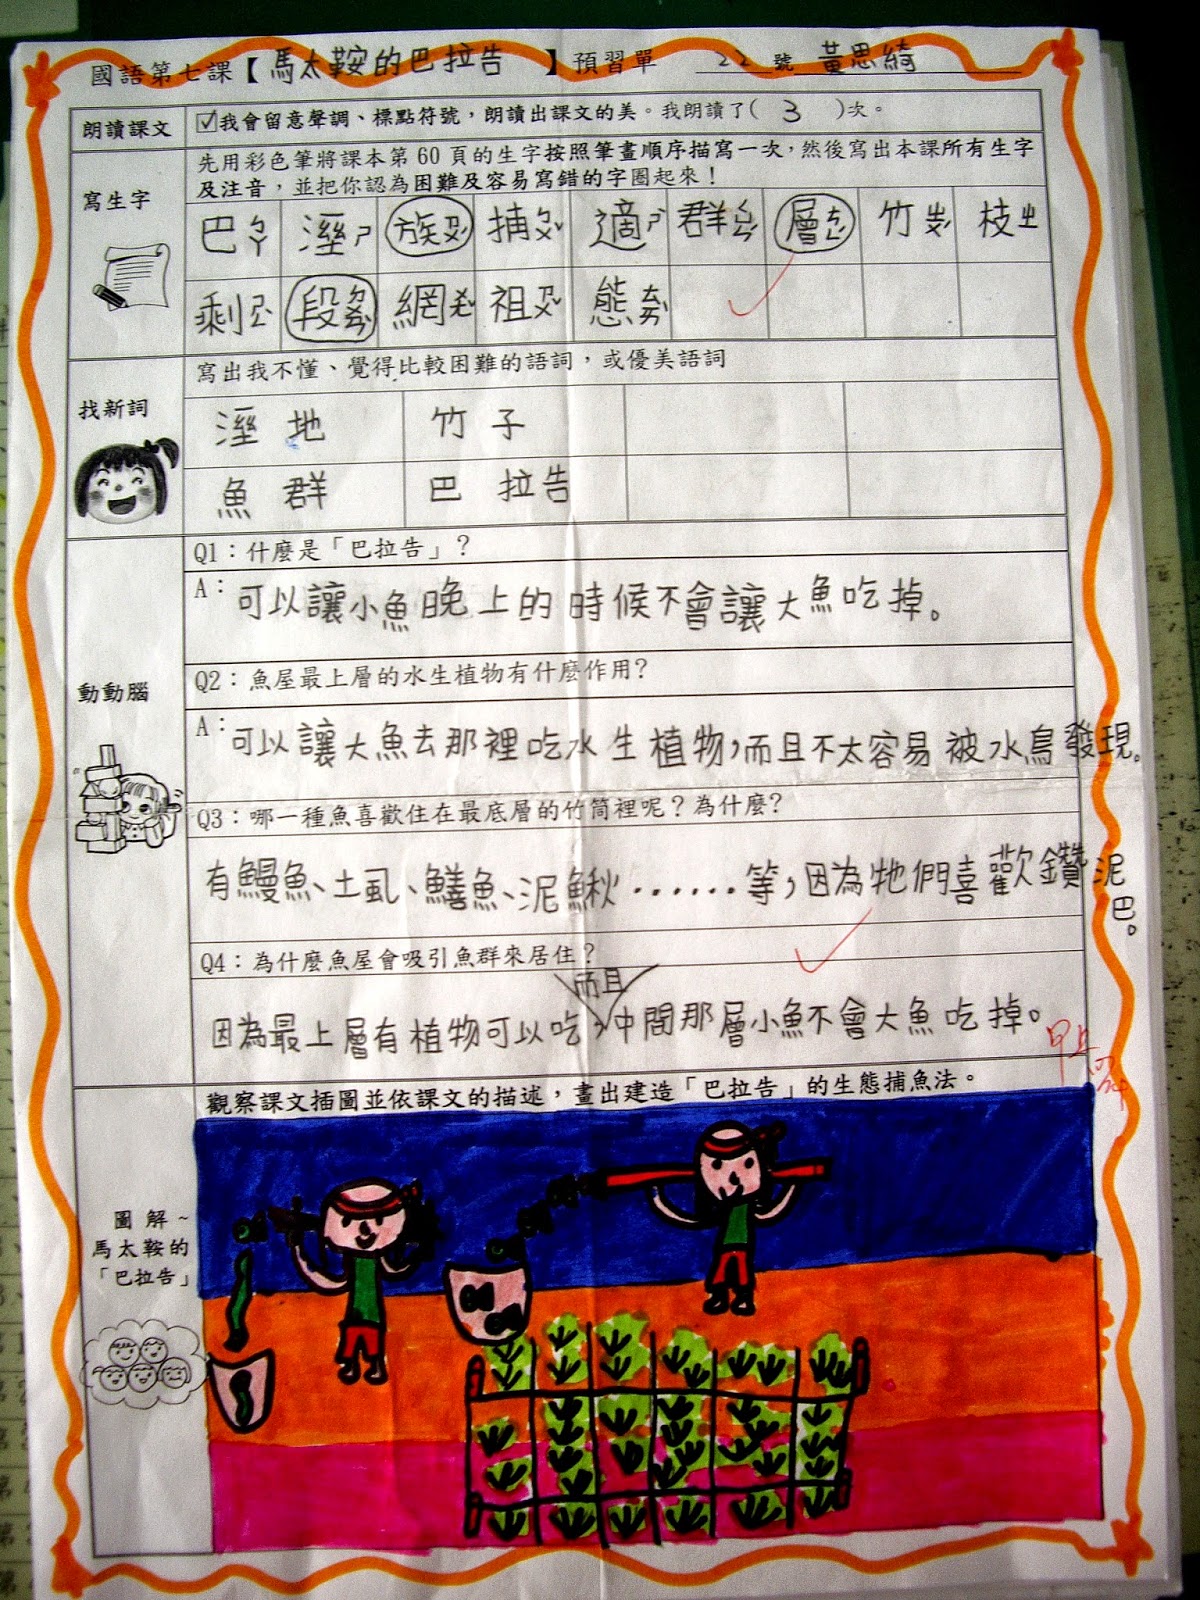 國語第七課【馬太鞍的巴拉告】預習單 22號 黃思綺
朗讀課文
☑我會留意聲調、標點符號，朗讀出課文的美。我朗讀了( 3 )次。
寫生字
先用彩色筆將課本第60頁的生字按照筆畫順序描寫一次，然後寫出本課所有生字
及注音，並把你認為困難及容易寫錯的字圈起來！
巴ㄅㄚ 溼ㄕ 族ㄗㄨˊ 捕ㄅㄨˇ 適ㄕˋ 群ㄑㄩㄣˊ 層ㄘㄥˊ 竹ㄓㄨˊ 枝ㄓ
剩ㄕㄥˋ 段ㄉㄨㄢˋ 網ㄨㄤˇ 祖ㄗㄨˇ 態ㄊㄞˋ
找新詞
寫出我不懂、覺得比較困難的語詞，或優美語詞
溼地 竹子
魚群 巴拉告
動動腦
Q1：什麼是「巴拉告」？
A：可以讓小魚晚上的時候不會讓大魚吃掉。
Q2：魚屋最上層的水生植物有什麼作用？
A：可以讓大魚去那裡吃水生植物，而且不太容易被水鳥發現。
Q3：哪一種魚喜歡住在最底層的竹筒裡呢？為什麼？
有鰻魚、土虱、鱔魚、泥鰍……等，因為牠們喜歡鑽泥巴。
Q4：為什麼魚屋會吸引魚群來居住？
而且
因為最上層有植物可以吃，中間那層小魚不會大魚吃掉。
甲上
觀察課文插圖並依課文的描述，畫出建造「巴拉告」的生態捕魚法。
圖解~
馬太鞍的
「巴拉告」